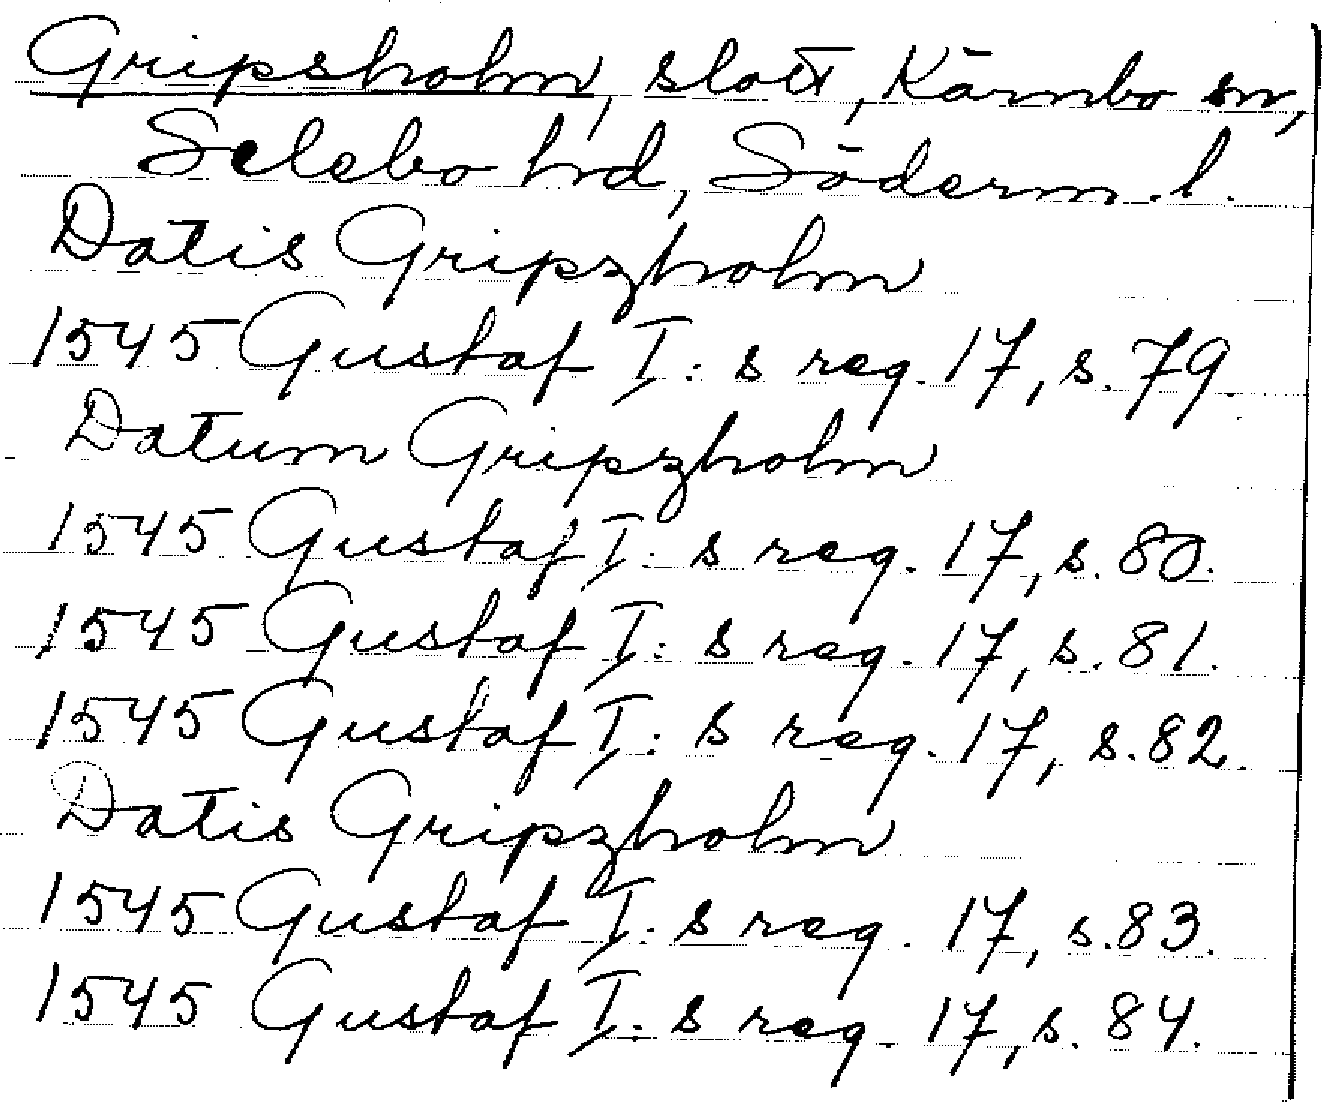 Gripsholm, slott, Kärnbo sn,
Selebo hd, Söderm. l.
Datis Gripzholm
1545 Gustaf I: s reg. 17, s. 79
Datum Gripzholm
1545 Gustaf I: s reg. 17, s. 80.
1545 Gustaf I: s reg. 17, s. 81.
1545 Gustaf I: s reg. 17, s. 82.
Datis Gripzholm
1545 Gustaf I: s reg. 17, s. 83.
1545 Gustaf I: s reg. 17, s. 84.